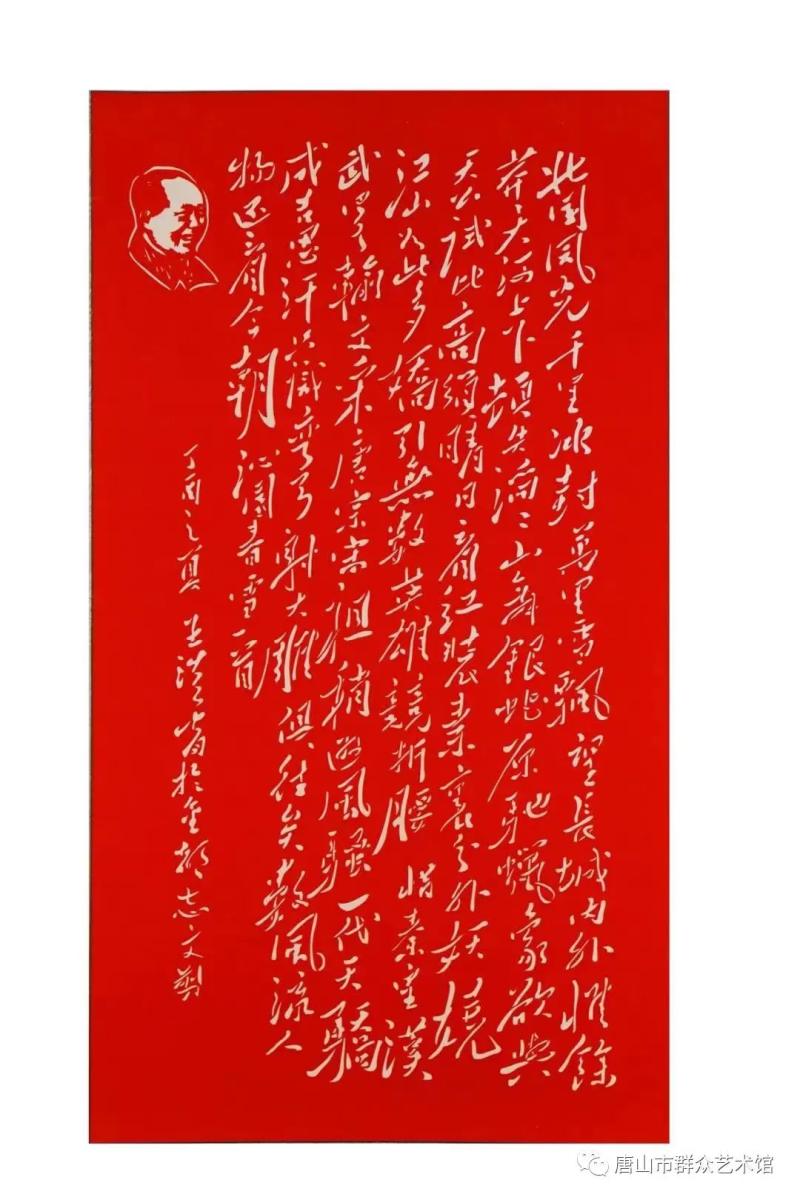 北国风光千里冰封萬里雪飘望長城内外惟餘
莽大河上下顿失滔〻山舞银蛇原驰蠟象欲與
天公试比高须晴日看红装素裹分外妖娆
江山如此多嬌引無数英雄競折腰 惜秦皇漢
武略输文采唐宗宋祖稍逊風骚一代天驕
成吉思汗只識弯弓射大雕俱往矣数風流人
物还看今朝 沁園春雪一首
丁酉之夏 王洪 於 志文剪
唐山市群众艺术馆